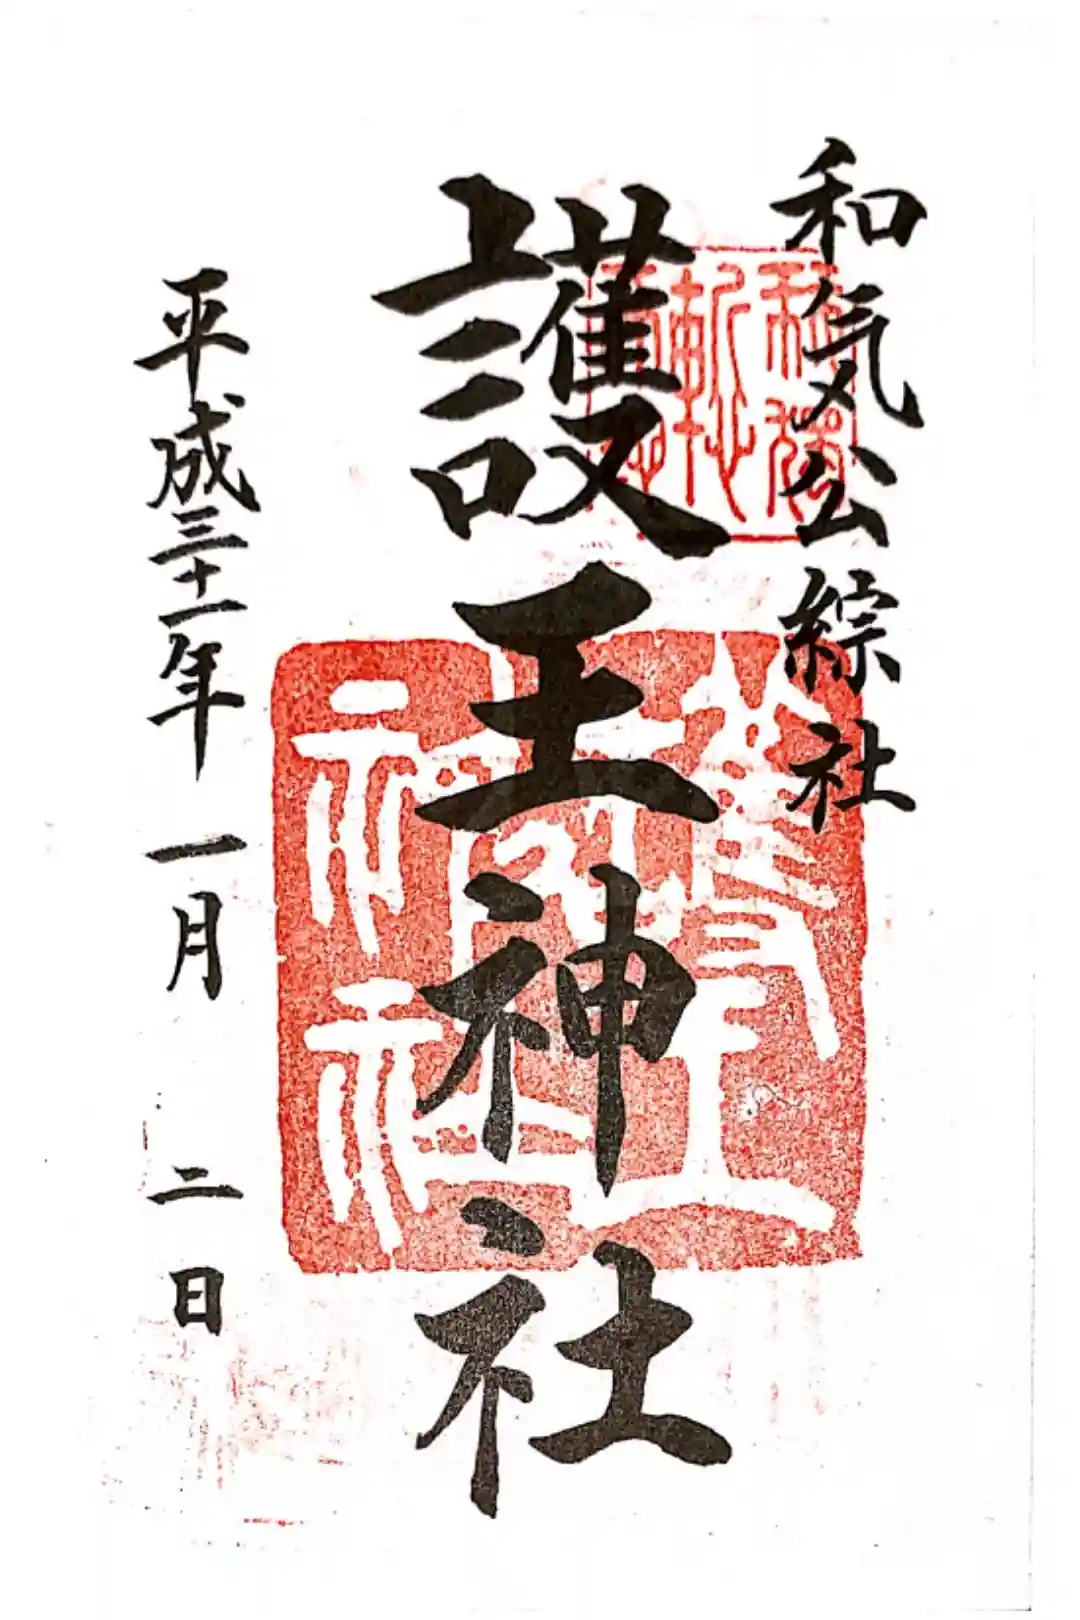 和気公綜社
護王神社
平成三十一年一月二日
護王神社